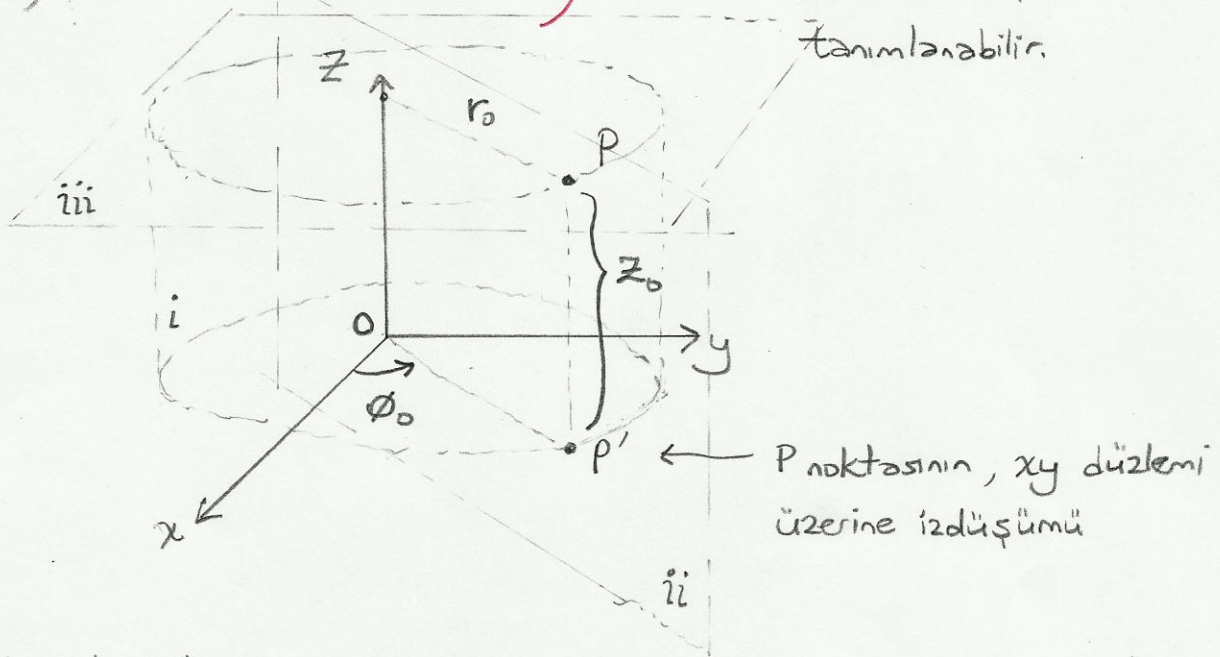 tanımlanabilir.
z
r₀
P
iii
z₀
i
O
y
φ₀
P'
← P noktasının, xy düzlemi
üzerine izdüşümü
x
ii